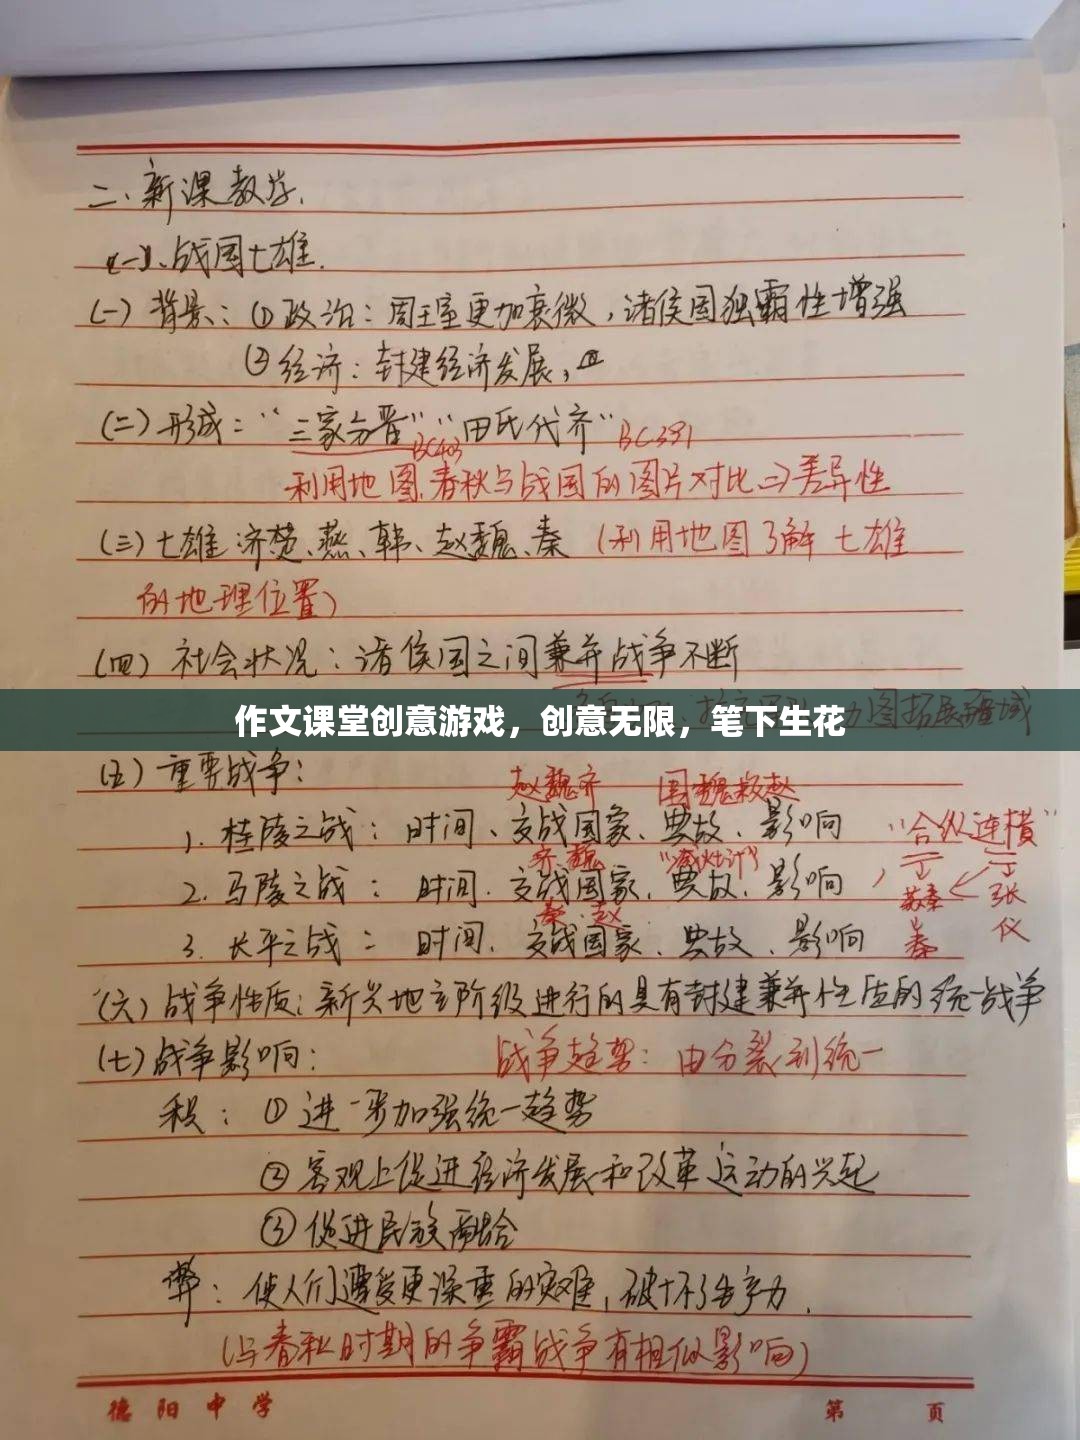 二、新课教学.
(一)、战国七雄.
(一) 背景：① 政治：周王室更加衰微，诸侯国独霸性增强
② 经济：封建经济发展，
(二) 形成："三家分晋" "田氏代齐" BC391
BC403
利用地图,春秋与战国的图片对比⇒差异性
(三) 七雄 济楚、燕、韩、赵魏、秦 (利用地图了解七雄
的地理位置)
(四) 社会状况：诸侯国之间兼并战争不断
图拓展疆域
作文课堂创意游戏，创意无限，笔下生花
(五) 重要战争：
赵魏齐 围魏救赵
1. 桂陵之战：时间、交战国家、典故、影响 "合纵连横"
齐魏 "减灶计"
2. 马陵之战：时间.交战国家,典故,影响 苏秦 张仪
秦.赵
3. 长平之战：时间.交战国家、典故、影响 秦
(六) 战争性质：新兴地主阶级进行的具有封建兼并性质的统一战争
(七) 战争影响： 战争趋势：由分裂到统一
积：① 进一步加强统一趋势
② 客观上促进经济发展和改革运动的兴起
③ 促进民族融合
弊：使人们遭受更深重的灾难，破坏了生产力.
(与春秋时期的争霸战争有相似影响)
德阳中学 第 页